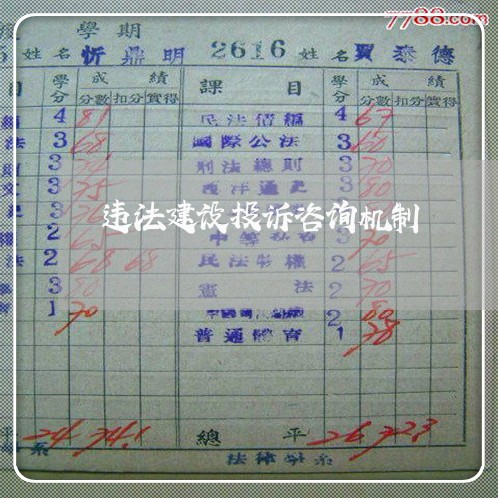 7788.com
學期
姓名 忻鼎明 2616 姓名 賈泰德
目 學分 成績 課目 學分 成績
分數 扣分 實得 分數 扣分 實得
4 81 民法債編 4 67
法 3 68 國際公法 3 60
3 刑法總則 3 70
3 75 西洋通史 3 80
違法建设投诉咨询机制
2 3 70
法 2 68 68 民法物權 2 65
3 80 憲法 2 70
1 70 2 80
普通體育 1 78
平 24 74.1 總平 26 72.3
系 法律學系